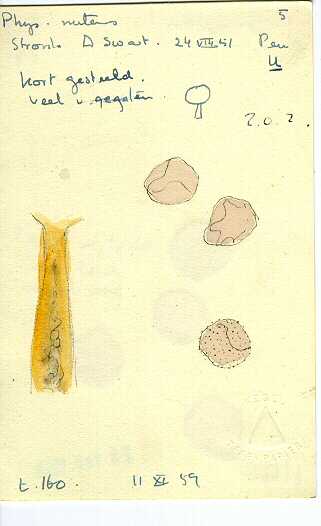 Phys. nutans 5
A Swart. 24 VIII 51 Pen
U
kort gesteeld.
veel v. gegeten.
t. 160. 11 XI 59